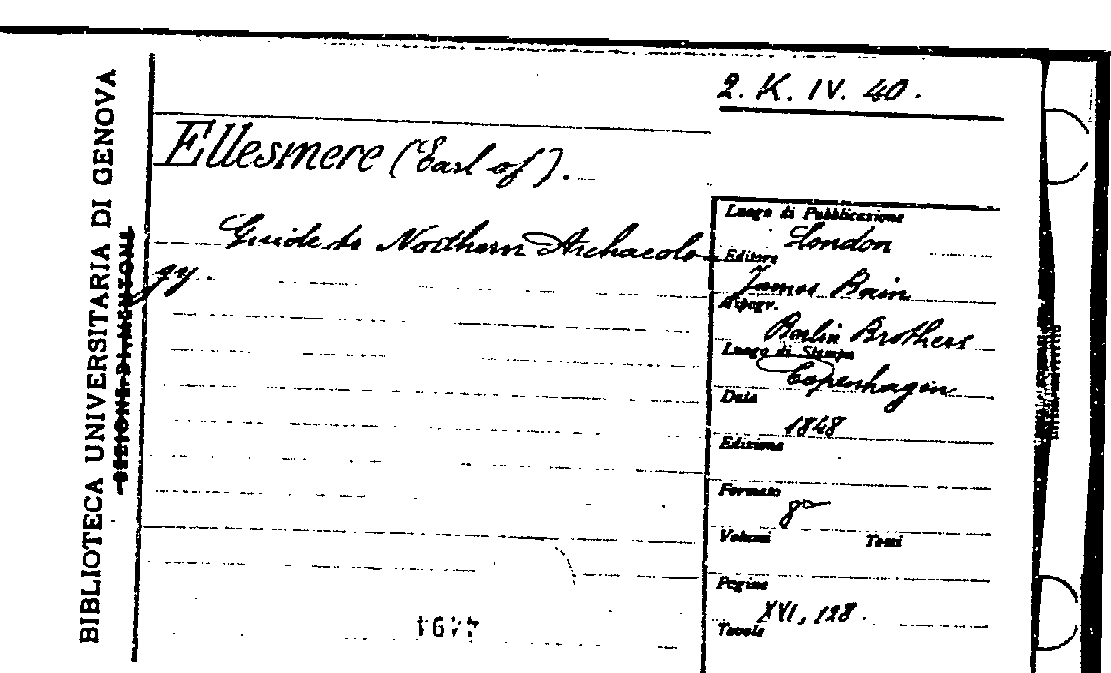 2. K. IV. 40.
BIBLIOTECA UNIVERSITARIA DI GENOVA
Ellesmere (Earl of).
Guide to Northern Archaeolo-
gy.
Luogo di Pubblicazione
London
Editore
James Bain
Tipogr.
Berlin Brothers
Luogo di Stampa
Copenhagen
Data
1848
Edizione
Formato
8°
Volumi Tomi
Pagine
XVI, 128.
Tavole